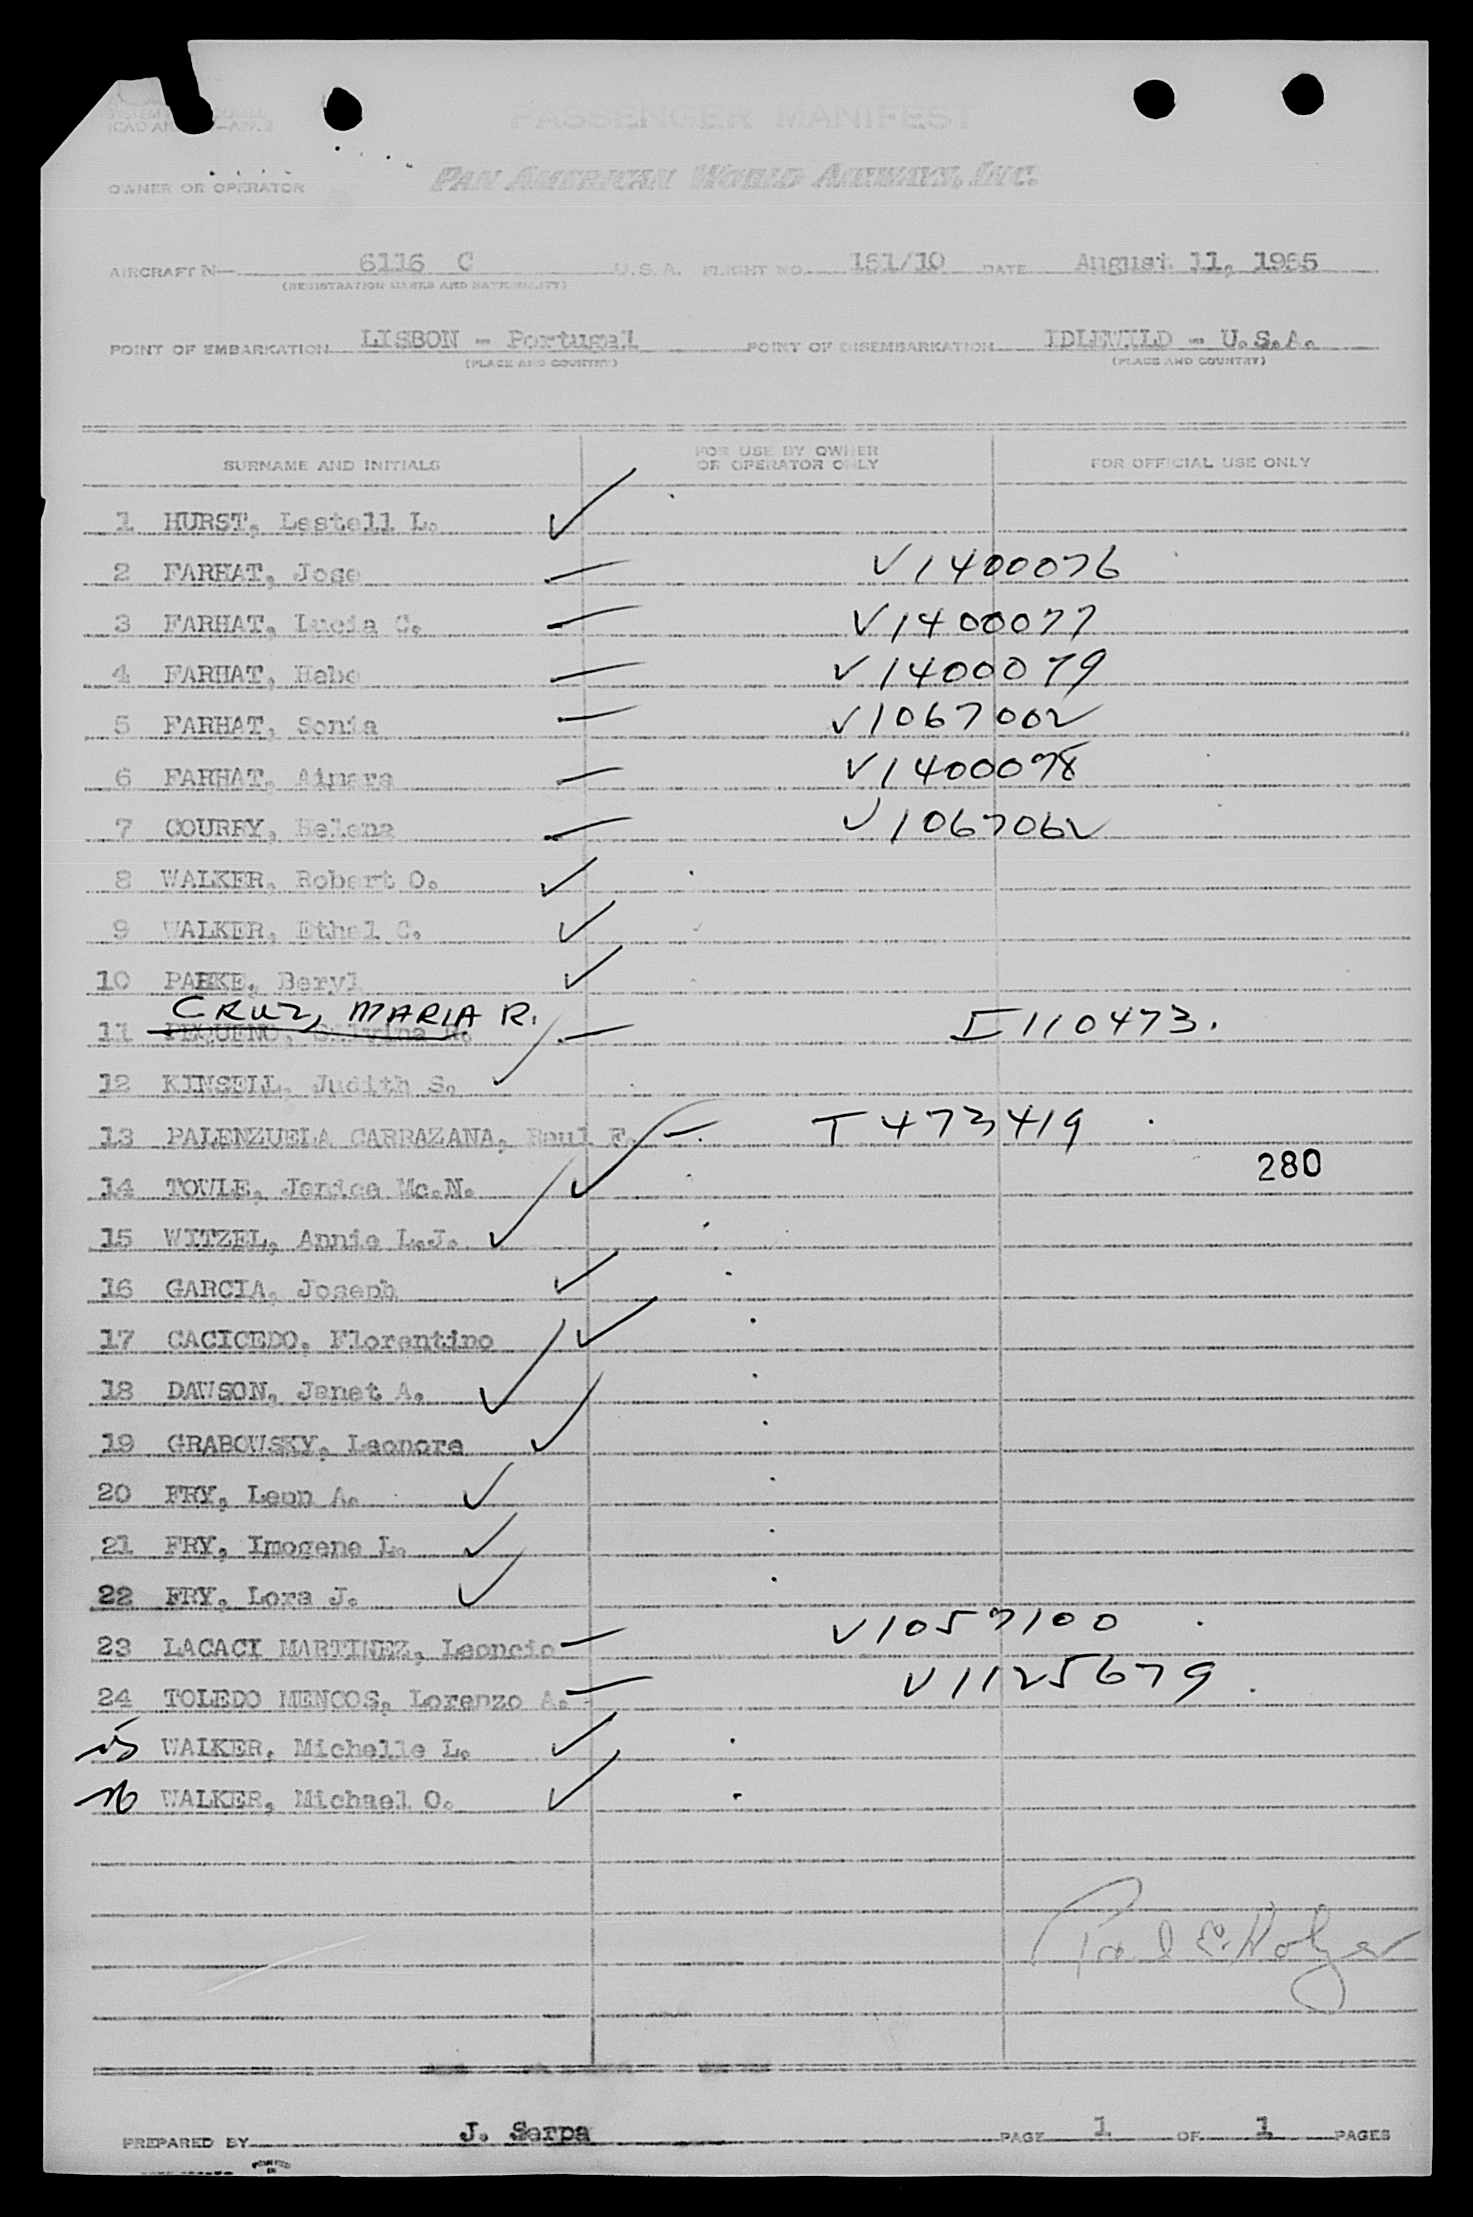 PASSENGER MANIFEST
OWNER OR OPERATOR PAN AMERICAN WORLD AIRWAYS, INC.
AIRCRAFT N 6116 C U.S.A. FLIGHT NO. 151/10 DATE August 11, 1955
(REGISTRATION MARKS AND NATIONALITY)
POINT OF EMBARKATION LISBON - Portugal POINT OF DISEMBARKATION IDLEWILD - U.S.A.
(PLACE AND COUNTRY) (PLACE AND COUNTRY)
SURNAME AND INITIALS FOR USE BY OWNER OR OPERATOR ONLY FOR OFFICIAL USE ONLY
1 HURST, Lestell L. ✓
2 FARHAT, Jose — V1400076
3 FARHAT, Lucia C. — V1400077
4 FARHAT, Hebe — V1400079
5 FARHAT, Sonia — V1067002
6 FARHAT, Ainara — V1400078
7 COURRY, Helena — V1067062
8 WALKER, Robert O. ✓
9 WALKER, Ethel C. ✓
10 PARKE, Beryl ✓
CRUZ, MARIA R.
11 PEQUENO, R. — I110473.
12 KINSELL, Judith S. ✓
13 PALENZUELA CARRAZANA, Raul F. — T473419
280
14 TOWLE, Janice Mc.N. ✓
15 WITZEL, Annie L.J. ✓
16 GARCIA, Joseph ✓
17 CACICEDO, Florentino ✓
18 DAWSON, Janet A. ✓
19 GRABOWSKY, Leonore ✓
20 FRY, Leon A. ✓
21 FRY, Imogene L. ✓
22 FRY, Lora J. ✓
23 LACACI MARTINEZ, Leoncio — V1057100
24 TOLEDO MENCOS, Lorenzo A. — V1125679
25 WALKER, Michelle L. ✓
26 WALKER, Michael O. ✓
PREPARED BY J. Serpa PAGE 1 OF 1 PAGES